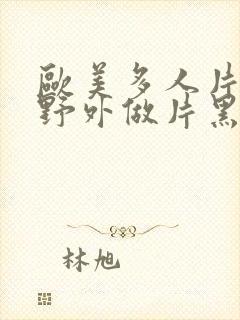 歐美多人片
野外做片黑
林旭